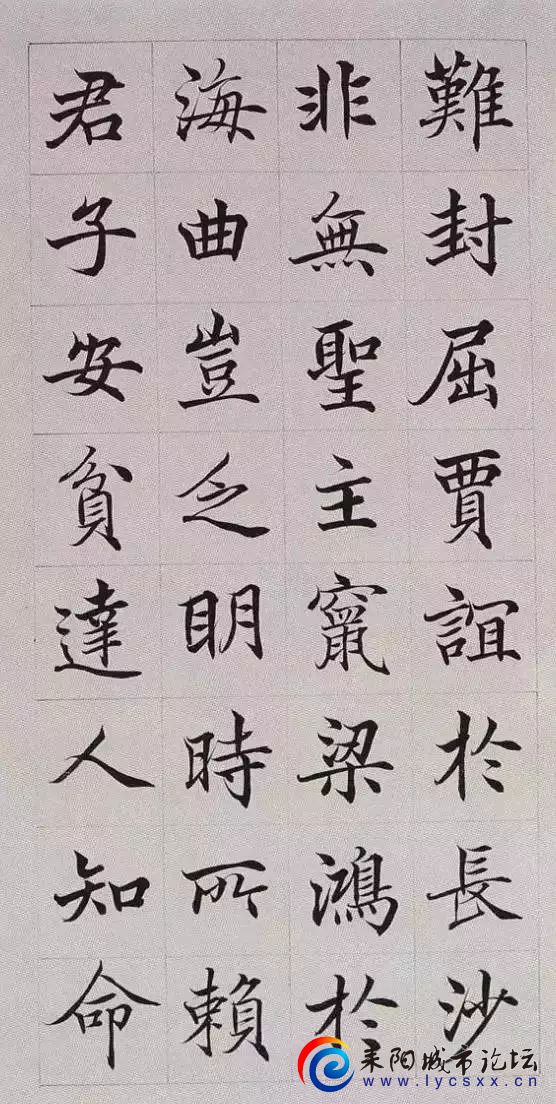 難封屈賈誼於長沙
非無聖主竄梁鴻於
海曲豈乏明時所賴
君子安貧達人知命
耒阳城市论坛
www.lycsxx.cn